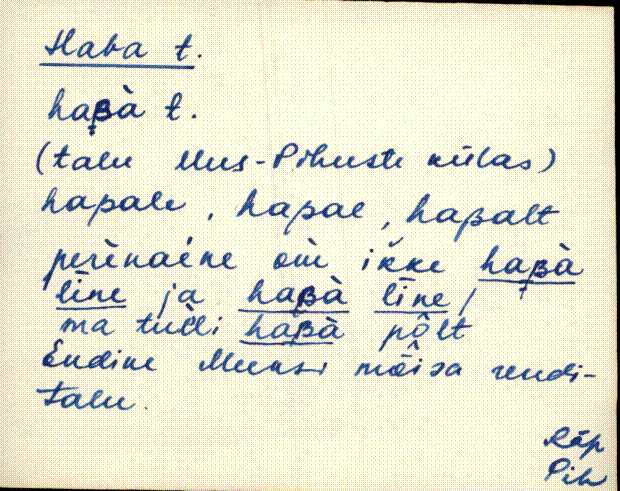 Haba t.
haʙ̭à t.
(talu Uus-Pihuste külas)
hapale, hapal, haʙalt
perènaéne om ikke haʙ̭à
līne ja haʙà līne /
ma tulli haʙà pǭlt
Endine Meeksi mõisa rendi-
talu.
Räp
Pih